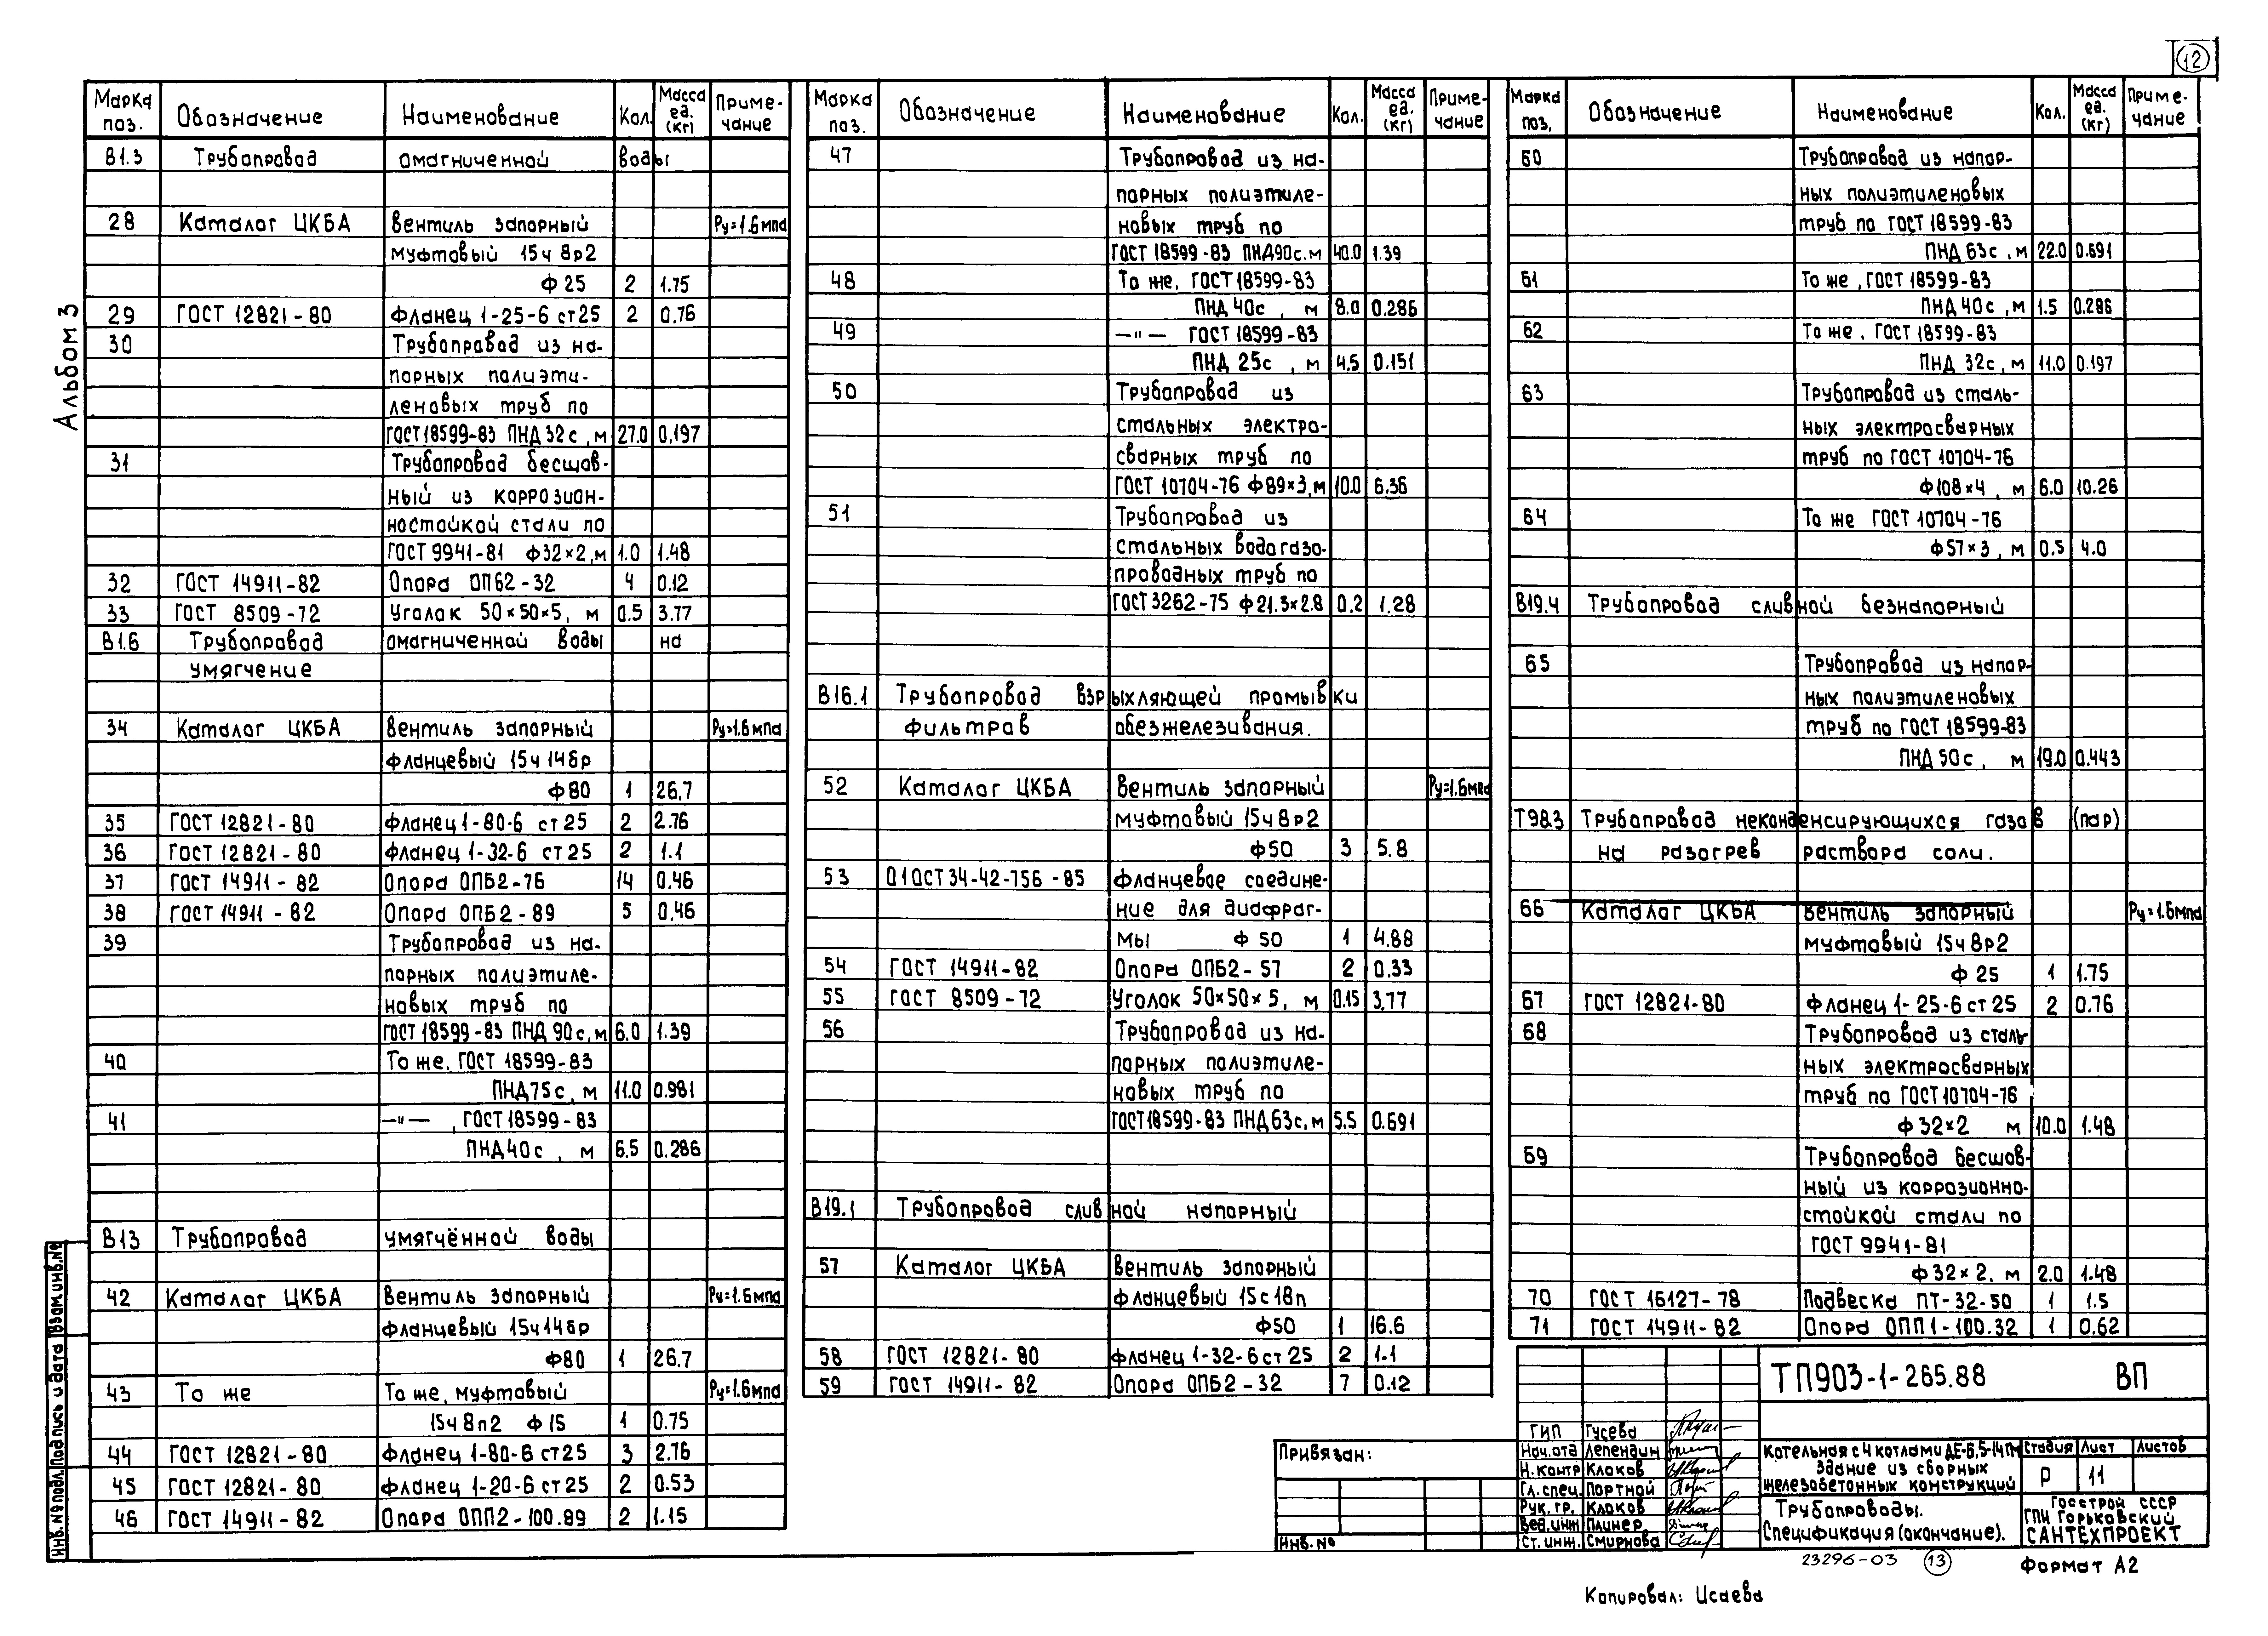 12
Альбом 3
Марка поз. Обозначение Наименование Кол. Масса ед. (кг) Приме-чание
В1.3 Трубопровод омагниченной воды
28 Каталог ЦКБА Вентиль запорный Ру=1.6мпа
муфтовый 15ч 8р2
Ф 25 2 1.75
29 ГОСТ 12821-80 Фланец 1-25-6 ст25 2 0.76
30 Трубопровод из на-
порных полиэти-
леновых труб по
ГОСТ18599-83 ПНД 32с, м 27.0 0,197
31 Трубопровод бесшов-
ный из коррозион-
ностойкой стали по
ГОСТ 9941-81 Ф32×2,м 1.0 1.48
32 ГОСТ 14911-82 Опора ОПБ2-32 4 0.12
33 ГОСТ 8509-72 Уголок 50×50×5, м 0.5 3.77
В1.6 Трубопровод омагниченной воды на
умягчение
34 Каталог ЦКБА Вентиль запорный Ру=1.6мпа
фланцевый 15ч 14бр
Ф80 1 26.7
35 ГОСТ 12821-80 Фланец 1-80-6 ст25 2 2.76
36 ГОСТ 12821-80 Фланец 1-32-6 ст25 2 1.1
37 ГОСТ 14911-82 Опора ОПБ2-76 14 0.46
38 ГОСТ 14911-82 Опора ОПБ2-89 5 0.46
39 Трубопровод из на-
порных полиэтиле-
новых труб по
ГОСТ 18599-83 ПНД 90с,м 6.0 1.39
40 То же. ГОСТ 18599-83
ПНД75с, м 11.0 0.981
41 —"— , ГОСТ18599-83
ПНД40с, м 6.5 0.286
В13 Трубопровод умягчённой воды
42 Каталог ЦКБА Вентиль запорный Ру=1.6мпа
Фланцевый 15ч14бр
Ф80 1 26.7
43 То же То же, муфтовый Ру=1.6мпа
15ч 8п2 Ф15 1 0.75
44 ГОСТ 12821-80 Фланец 1-80-6 ст25 3 2.76
45 ГОСТ 12821-80 Фланец 1-20-6 ст25 2 0.53
46 ГОСТ 14911-82 Опора ОПП2-100.89 2 1.15
Марка поз. Обозначение Наименование Кол. Масса ед. (кг) Приме-чание
47 Трубопровод из на-
порных полиэтиле-
новых труб по
ГОСТ 18599-83 ПНД90с.м 40.0 1.39
48 То же, ГОСТ 18599-83
ПНД 40с, м 8.0 0.286
49 —"— ГОСТ 18599-83
ПНД 25с, м 4.5 0.151
50 Трубопровод из
стальных электро-
сварных труб по
ГОСТ 10704-76 Ф89×3,м 10.0 6.36
51 Трубопровод из
стальных водогазо-
проводных труб по
ГОСТ3262-75 Ф21.3×2.8 0.2 1.28
В16.1 Трубопровод взрыхляющей промывки
фильтров обезжелезивания.
52 Каталог ЦКБА Вентиль запорный Ру=1.6мпа
муфтовый 15ч8р2
Ф50 3 5.8
53 01ОСТ34-42-756-85 Фланцевое соедине-
ние для диафраг-
мы Ф 50 1 4.88
54 ГОСТ 14911-82 Опора ОПБ2-57 2 0.33
55 ГОСТ 8509-72 Уголок 50×50×5, м 0.15 3,77
56 Трубопровод из на-
порных полиэтиле-
новых труб по
ГОСТ18599-83 ПНД63с,м 5.5 0.691
В19.1 Трубопровод сливной напорный
57 Каталог ЦКБА Вентиль запорный
фланцевый 15с18п
Ф50 1 16.6
58 ГОСТ 12821-80 Фланец 1-32-6 ст 25 2 1.1
59 ГОСТ 14911-82 Опора ОПБ2-32 7 0.12
Марка поз. Обозначение Наименование Кол. Масса ед. (кг) Приме-чание
60 Трубопровод из напор-
ных полиэтиленовых
труб по ГОСТ 18599-83
ПНД 63с, м 22.0 0.691
61 То же, ГОСТ 18599-83
ПНД 40с, м 1.5 0.286
62 То же, ГОСТ 18599-83
ПНД 32с, м 11.0 0.197
63 Трубопровод из сталь-
ных электросварных
труб по ГОСТ 10704-76
Ф108×4, м 6.0 10.26
64 То же ГОСТ 10704-76
Ф57×3, м 0.5 4.0
В19.4 Трубопровод сливной безнапорный
65 Трубопровод из напор-
ных полиэтиленовых
труб по ГОСТ 18599-83
ПНД 50с, м 19.0 0.443
Т98.3 Трубопровод неконденсирующихся газов (пар)
на разогрев раствора соли.
66 Каталог ЦКБА Вентиль запорный Ру=1.6мпа
муфтовый 15ч8р2
Ф 25 1 1.75
67 ГОСТ 12821-80 Фланец 1-25-6 ст 25 2 0.76
68 Трубопровод из сталь
ных электросварных
труб по ГОСТ10704-76
Ф 32×2 м 10.0 1.48
69 Трубопровод бесшов-
ный из коррозионно-
стойкой стали по
ГОСТ 9941-81
Ф 32×2. м 2.0 1.48
70 ГОСТ 16127-78 Подвеска ПТ-32-50 1 1.5
71 ГОСТ 14911-82 Опора ОПП1-100.32 1 0.62
ТП903-1-265.88 ВП
Привязан:
Инв. №
ГИП Гусева
Нач.отд Лепендин
Н.контр Клоков
Гл.спец. Портной
Рук. гр. Клоков
Вед.инж Плинер
Ст. инж. Смирнова
Котельная с 4 котлами ДЕ-6,5-14ГМ
Здание из сборных
железобетонных конструкций
Стадия Лист Листов
Р 11
Трубопроводы.
Спецификация (окончание).
Госстрой СССР
ГПИ Горьковский
САНТЕХПРОЕКТ
23296-03 13
Формат А2
Копировал: Исаева
Взам.инв.№
Подпись и дата
Инв.№ подл.